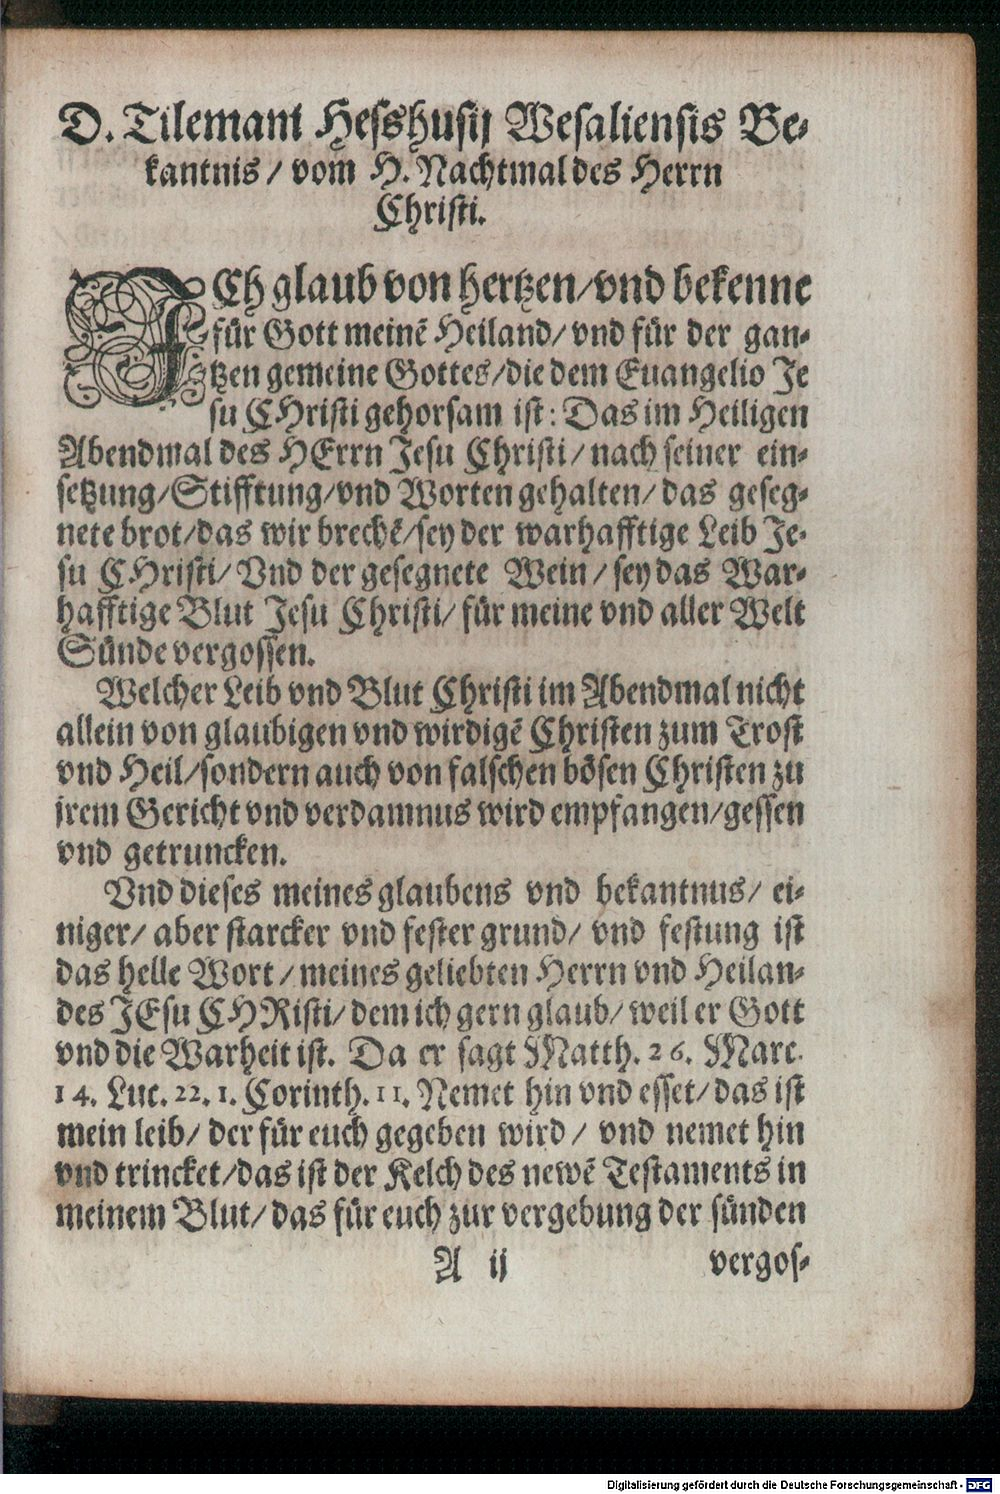 D. Tilemani Hesshusij Wesaliensis Be-
kantnis / vom H. Nachtmal des Herrn
Christi.
ICh glaub von hertzen/vnd bekenne
für Gott meinẽ Heiland/ vnd für der gan-
tzen gemeine Gottes/die dem Euangelio Je
su CHristi gehorsam ist: Das im Heiligen
Abendmal des HErrn Jesu Christi/ nach seiner ein-
setzung/Stifftung/vnd Worten gehalten/ das geseg-
nete brot/das wir brechẽ/sey der warhafftige Leib Je-
su CHristi/ Vnd der gesegnete Wein / sey das War-
hafftige Blut Jesu Christi/ für meine vnd aller Welt
Sünde vergossen.
Welcher Leib vnd Blut Christi im Abendmal nicht
allein von glaubigen vnd wirdigẽ Christen zum Trost
vnd Heil/sondern auch von falschen bösen Christen zu
jrem Gericht vnd verdamnus wird empfangen/gessen
vnd getruncken.
Vnd dieses meines glaubens vnd bekantnus/ ei-
niger/ aber starcker vnd fester grund/ vnd festung ist
das helle Wort / meines geliebten Herrn vnd Heilan-
des JEsu CHRisti/ dem ich gern glaub/ weil er Gott
vnd die Warheit ist. Da er sagt Matth. 26. Marc.
14. Luc. 22. 1. Corinth. 11. Nemet hin vnd esset/ das ist
mein leib/ der für euch gegeben wird / vnd nemet hin
vnd trincket/das ist der Kelch des newẽ Testaments in
meinem Blut/ das für euch zur vergebung der sünden
A ij vergos-
Digitalisierung gefördert durch die Deutsche Forschungsgemeinschaft - DFG